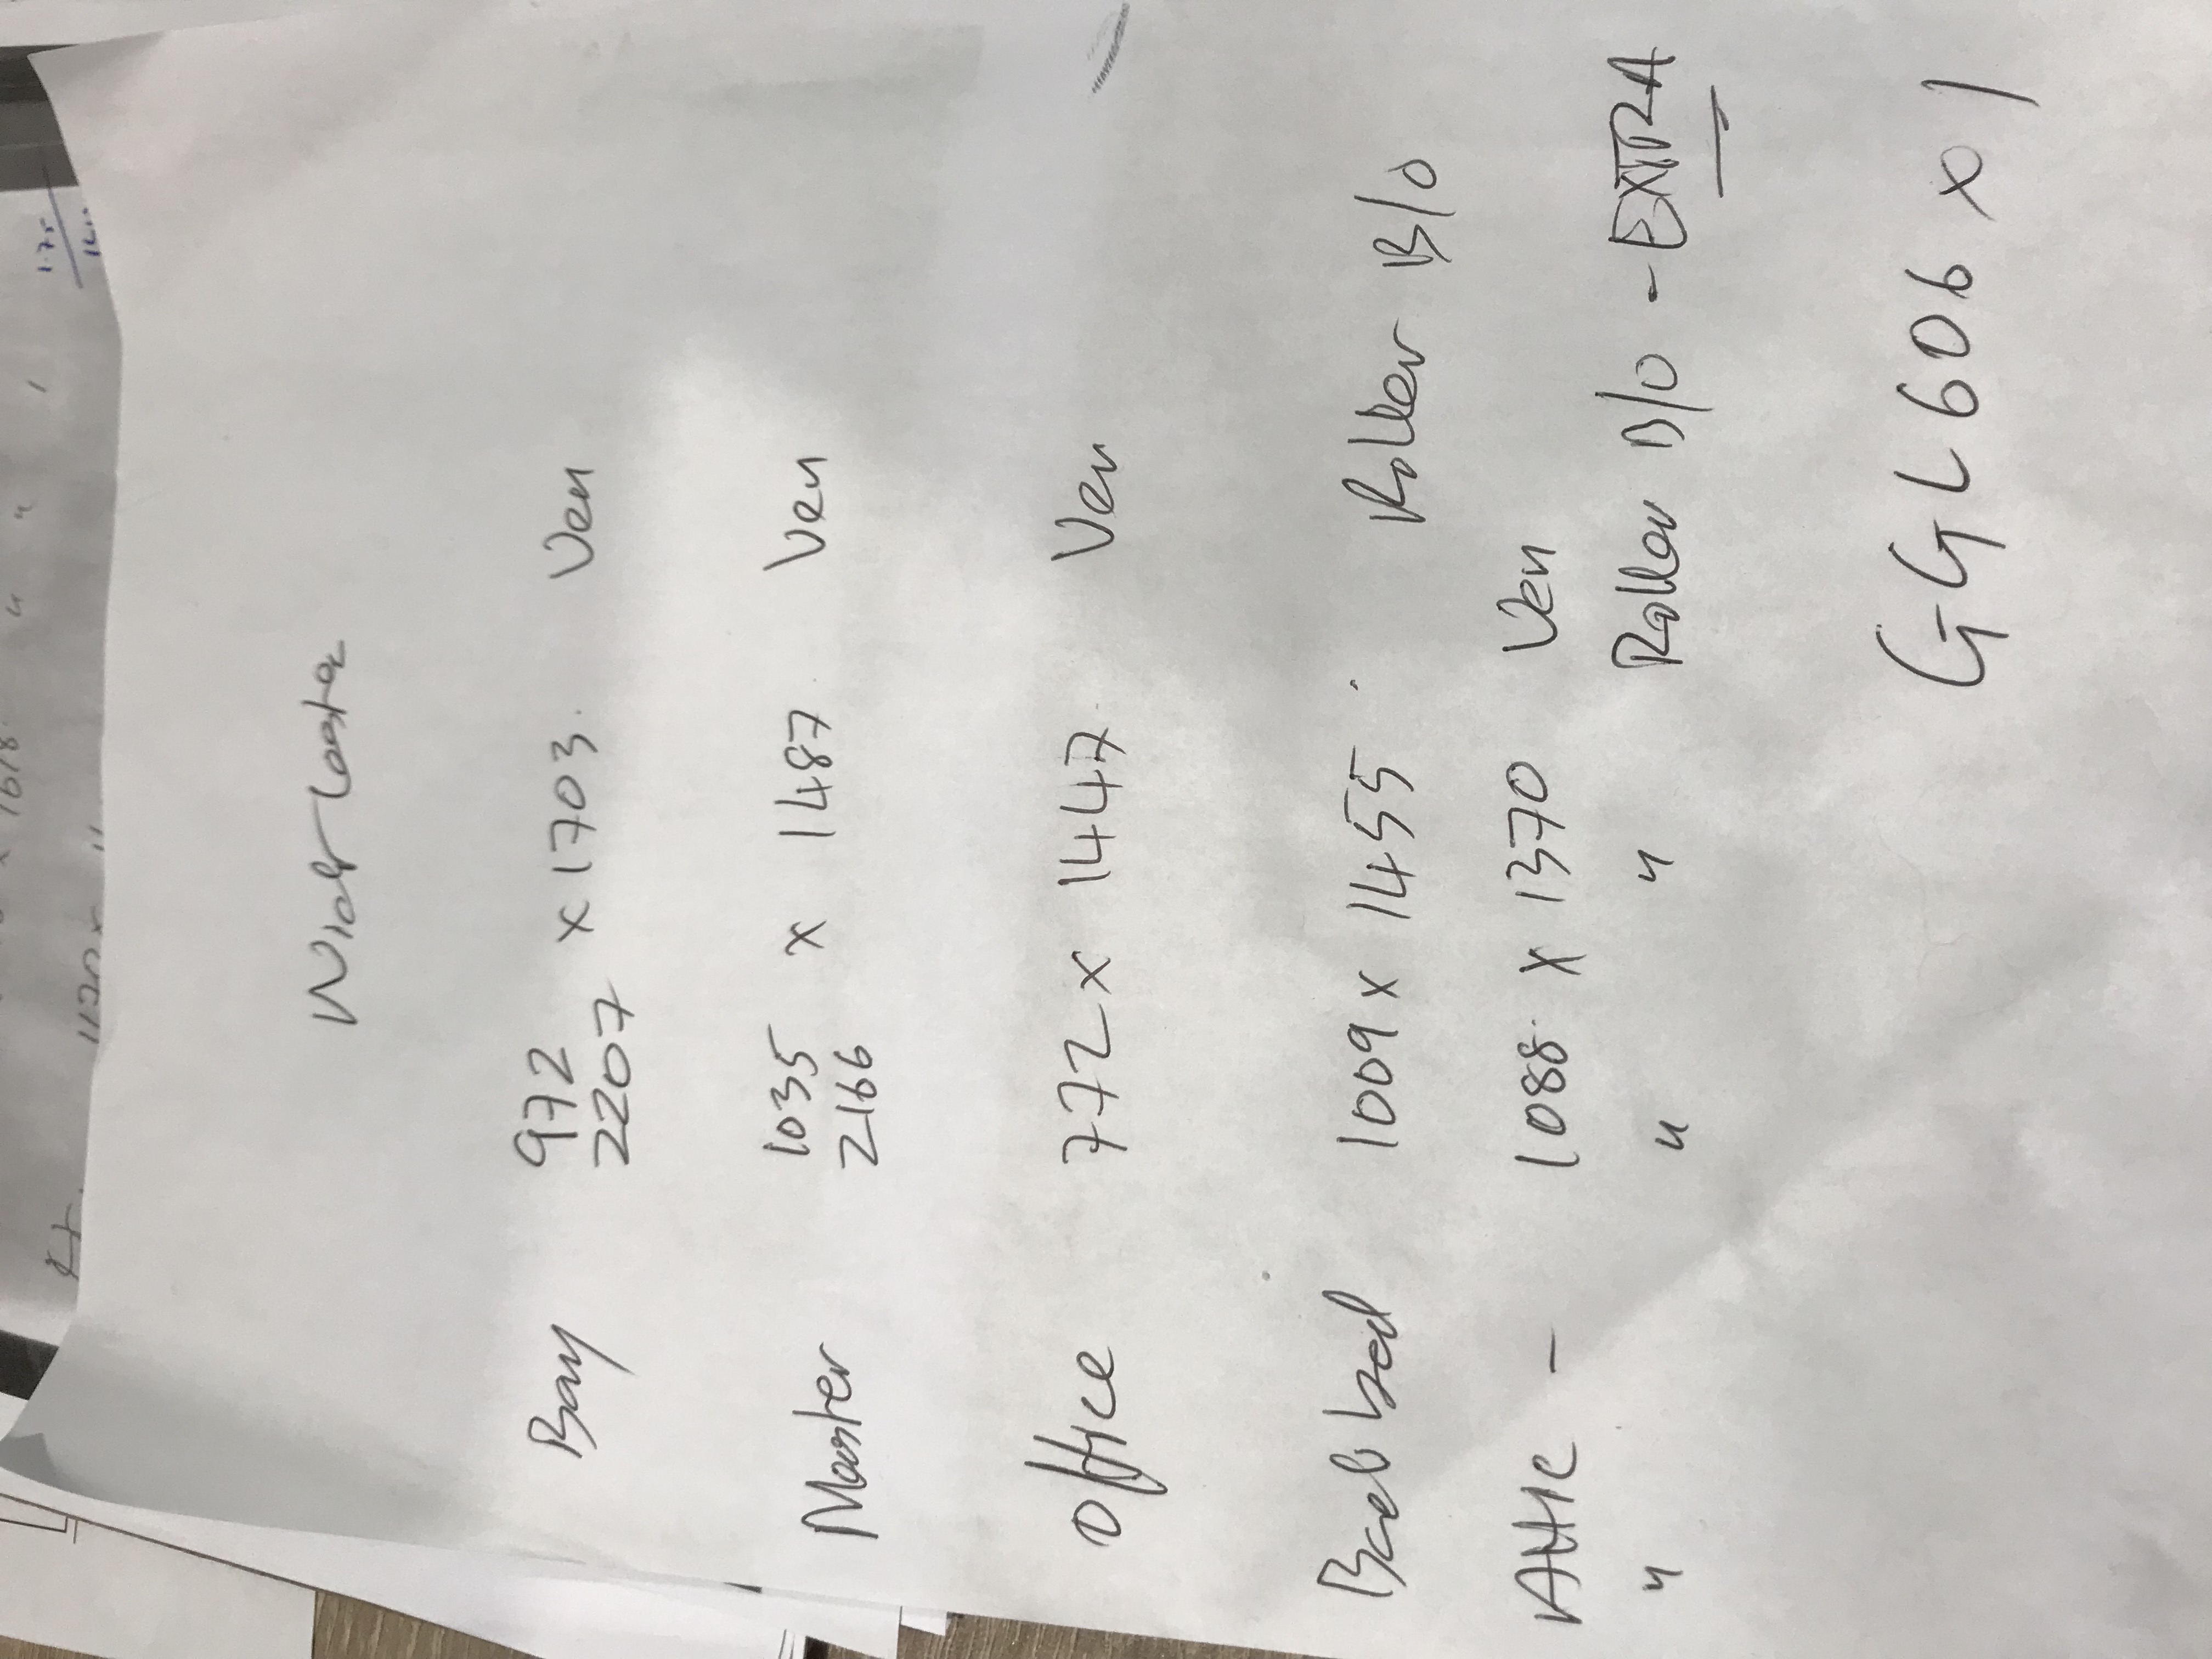 Bay 972 x 1703. Ven
2207
Master 1035 x 1487 Ven
2166
Office 772 x 1447. Ven
Back bed 1009 x 1455. Roller B/O
Attic - 1088. x 1370 Ven
" " " Roller B/O - EXTRA
GGL606 x 1